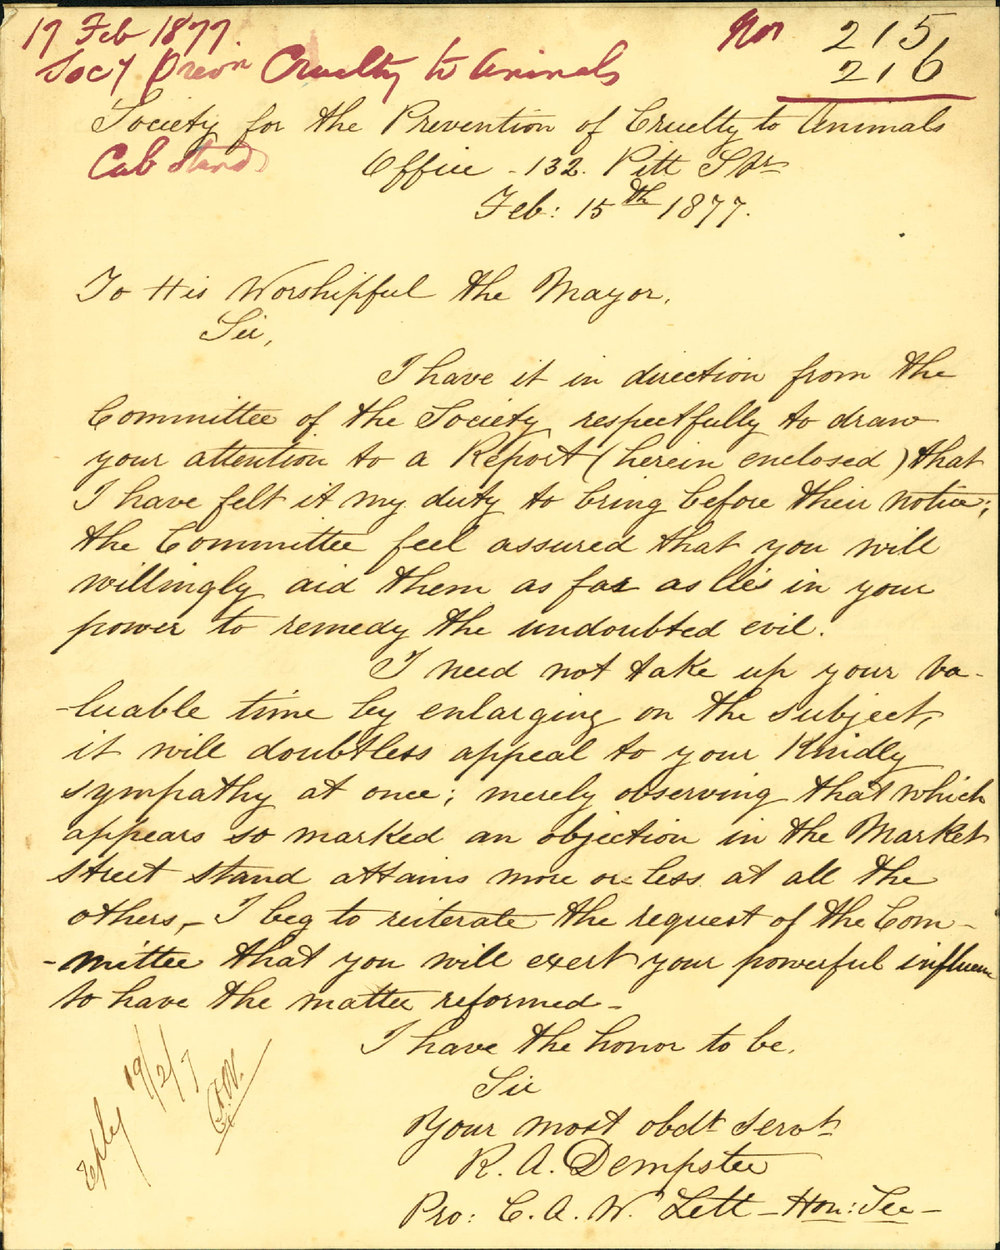 17 Feb 1877
Nos 215,
216
Socy Preon Cruelty to Animals
Society for the Prevention of Cruelty to Animals
Cab Stand
Office - 132. Pitt Str
Feb: 15th 1877.
To His Worshipful the Mayor,
Sir,
I have it in direction from the
Committee of the Society respectfully to draw
your attention to a Report (herein enclosed) that
I have felt it my duty to bring before their notice;
the Committee feel assured that you will
willingly aid them as far as lies in your
power to remedy the undoubted evil.
I need not take up your va-
-luable time by enlarging on the subject,
it will doubtless appeal to your Kindly
sympathy at once; merely observing that which
appears so marked an objection in the Market
Street Stand attains more or less at all the
others, - I beg to reiterate the request of the Com-
-mittee that you will exert your powerful influence
to have the matter reformed -
I have the honor to be,
Sir
Your most obdt servt
R. A. Dempster
Pro: C. A. W. Lett - Hon: Sec -
reply 19/2/7